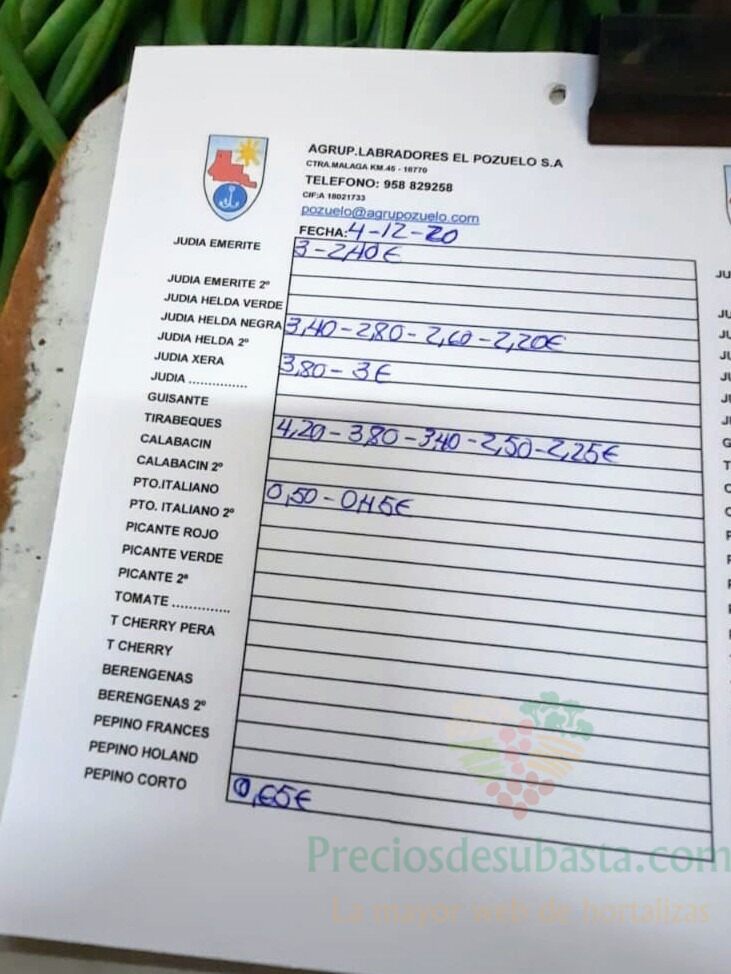 AGRUP.LABRADORES EL POZUELO S.A
CTRA.MALAGA KM.45 - 18770
TELEFONO: 958 829258
CIF:A 18021733
pozuelo@agrupozuelo.com
FECHA: 4-12-20
JUDIA EMERITE 3-2,40€
JUDIA EMERITE 2º
JUDIA HELDA VERDE
JUDIA HELDA NEGRA 3,40-2,80-2,60-2,20€
JUDIA HELDA 2º
JUDIA XERA 3,80-3€
JUDIA ...............
GUISANTE
TIRABEQUES 4,20-3,80-3,40-2,50-2,25€
CALABACIN
CALABACIN 2º
PTO.ITALIANO 0,50-0,45€
PTO. ITALIANO 2º
PICANTE ROJO
PICANTE VERDE
PICANTE 2ª
TOMATE ...............
T CHERRY PERA
T CHERRY
BERENGENAS
BERENGENAS 2º
PEPINO FRANCES
PEPINO HOLAND
PEPINO CORTO 0,65€
Preciosdesubasta.com
La mayor web de hortalizas